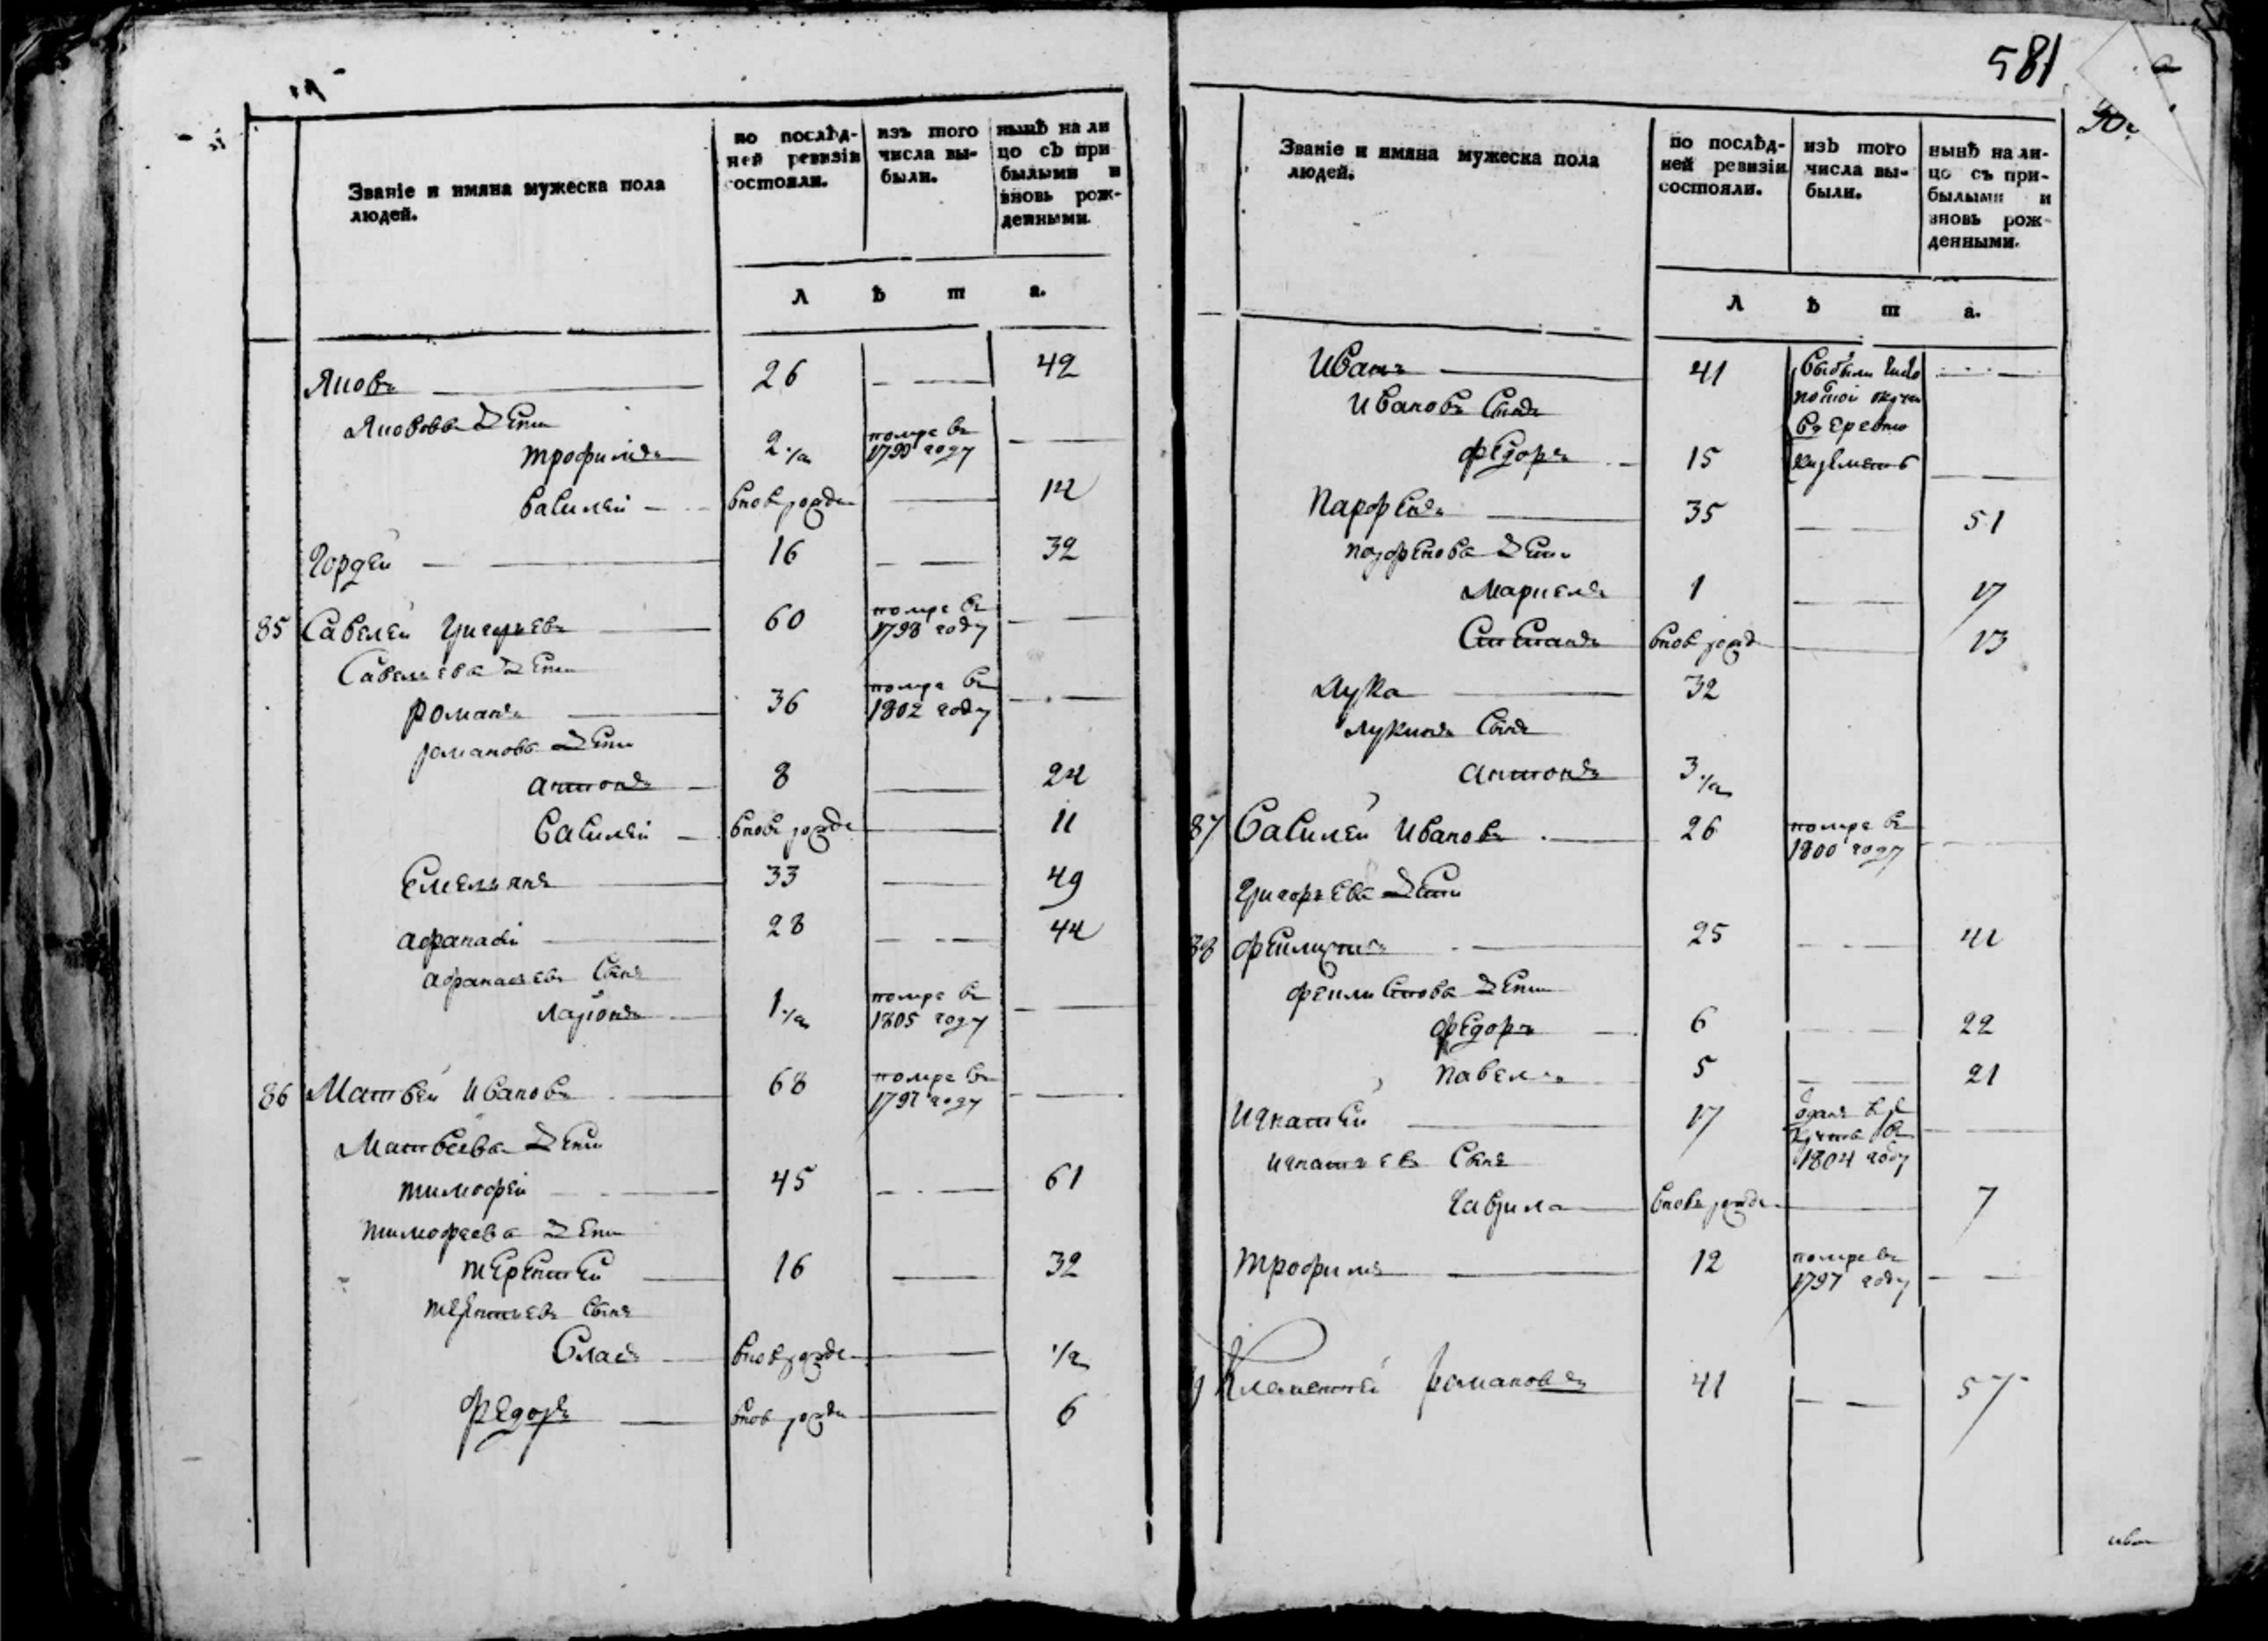 Званіе и имяна мужеска пола
людей.
по послѣд-
ней ревизіи
состояли.
изъ того
числа вы-
были.
нынѣ на ли
цо съ при
былыми и
вновь рож-
денными.
л ѣ т а.
Яковъ 26 42
Яковова Дѣти
трофимъ 2 помре въ 1799 году
василей вновь рожде 14
Гордей 16 32
85 Савелей Григорьевъ 60 помре въ 1798 году
Савельева Дѣти
романъ 36 помре въ 1802 году
романова Дѣти
антонъ 8 24
василей вновь рожде 11
Емельянъ 33 49
афанасей 28 44
афанасьевъ Сынъ
ларионъ 1 помре въ 1805 году
86 Матвей Ивановъ 68 помре въ 1797 году
Матвеева Дѣти
тимофей 45 61
тимофеева Дѣти
терентей 16 32
терентьевъ Сынъ
власъ вновь рожде 1/2
федоръ вновь рожде 6
581
Званіе и имяна мужеска пола
людей.
по послѣд-
ней ревизіи
состояли.
изъ того
числа вы-
были.
нынѣ на ли-
цо съ при-
былыми и
вновь рож-
денными.
л ѣ т а.
Иванъ 41
Ивановъ Сынъ
федоръ 15
Парфенъ 35 51
парфенова Дѣти
Маркелъ 1 17
Степанъ вновь рожде 13
Лука 32
Лукинъ Сынъ
антонъ 3
87 Василей Ивановъ 26 помре въ 1800 году
Григорьева Дѣти
88 феклистъ 25 41
феклистова Дѣти
федоръ 6 22
павелъ 5 21
Игнатей 17 отданъ въ рекруты въ 1804 году
игнатьевъ Сынъ
Гаврила вновь рожде 7
трофимъ 12 помре въ 1797 году
Клементей романовъ 41 57
ива